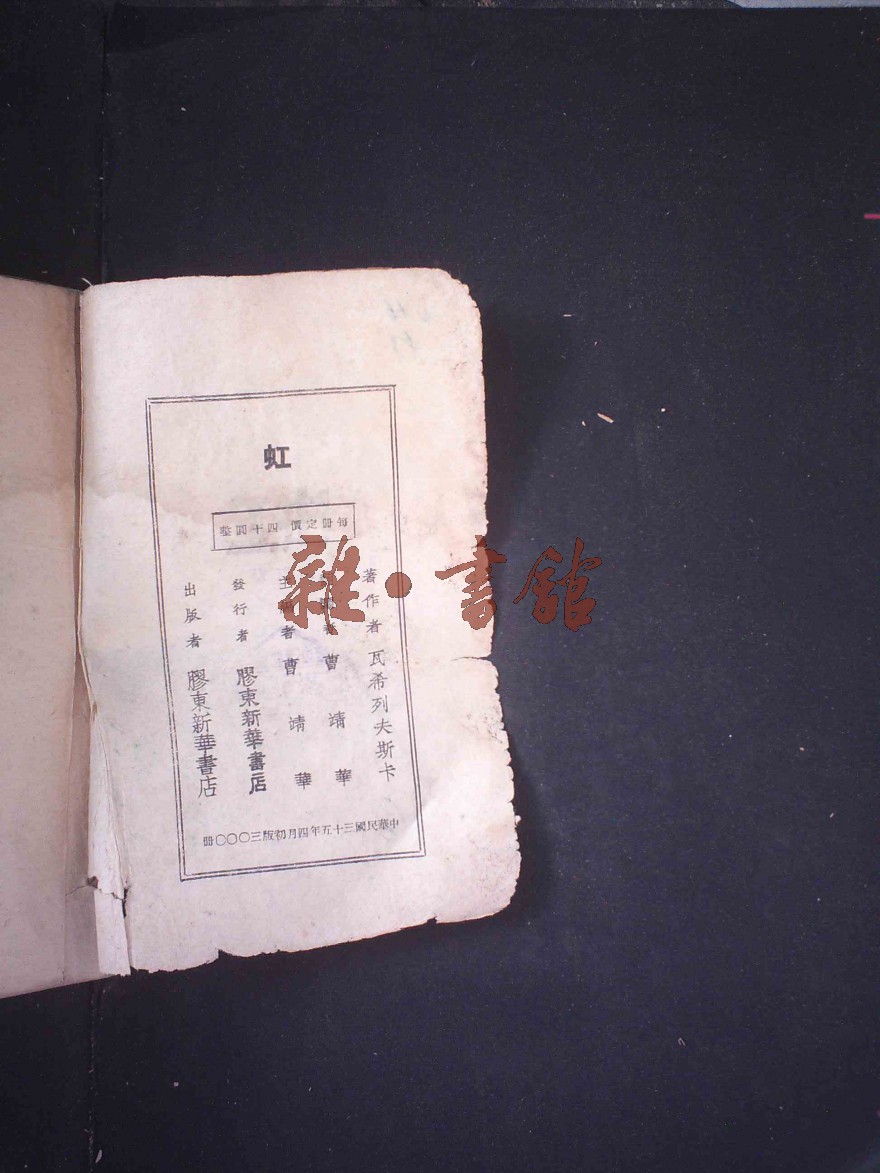 虹
每冊定價 四十圓整
著作者 瓦希列夫斯卡
者 曹靖華
主編者 曹靖華
發行者 膠東新華書店
出版者 膠東新華書店
中華民國三十五年四月初版三〇〇〇冊
雜·書館